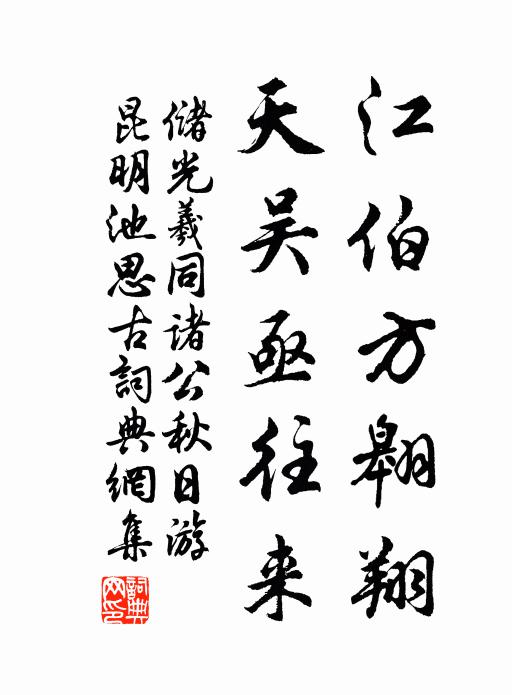 江伯方翱翔
天吴亟往来
儲光羲同諸公秋日游
昆明池思古詞典網集
詞典网印